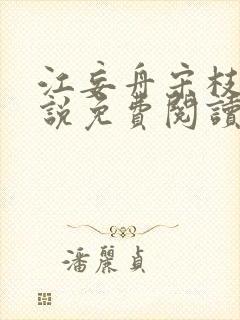 江妄舟宋枝
說免費閱讀
潘麗貞